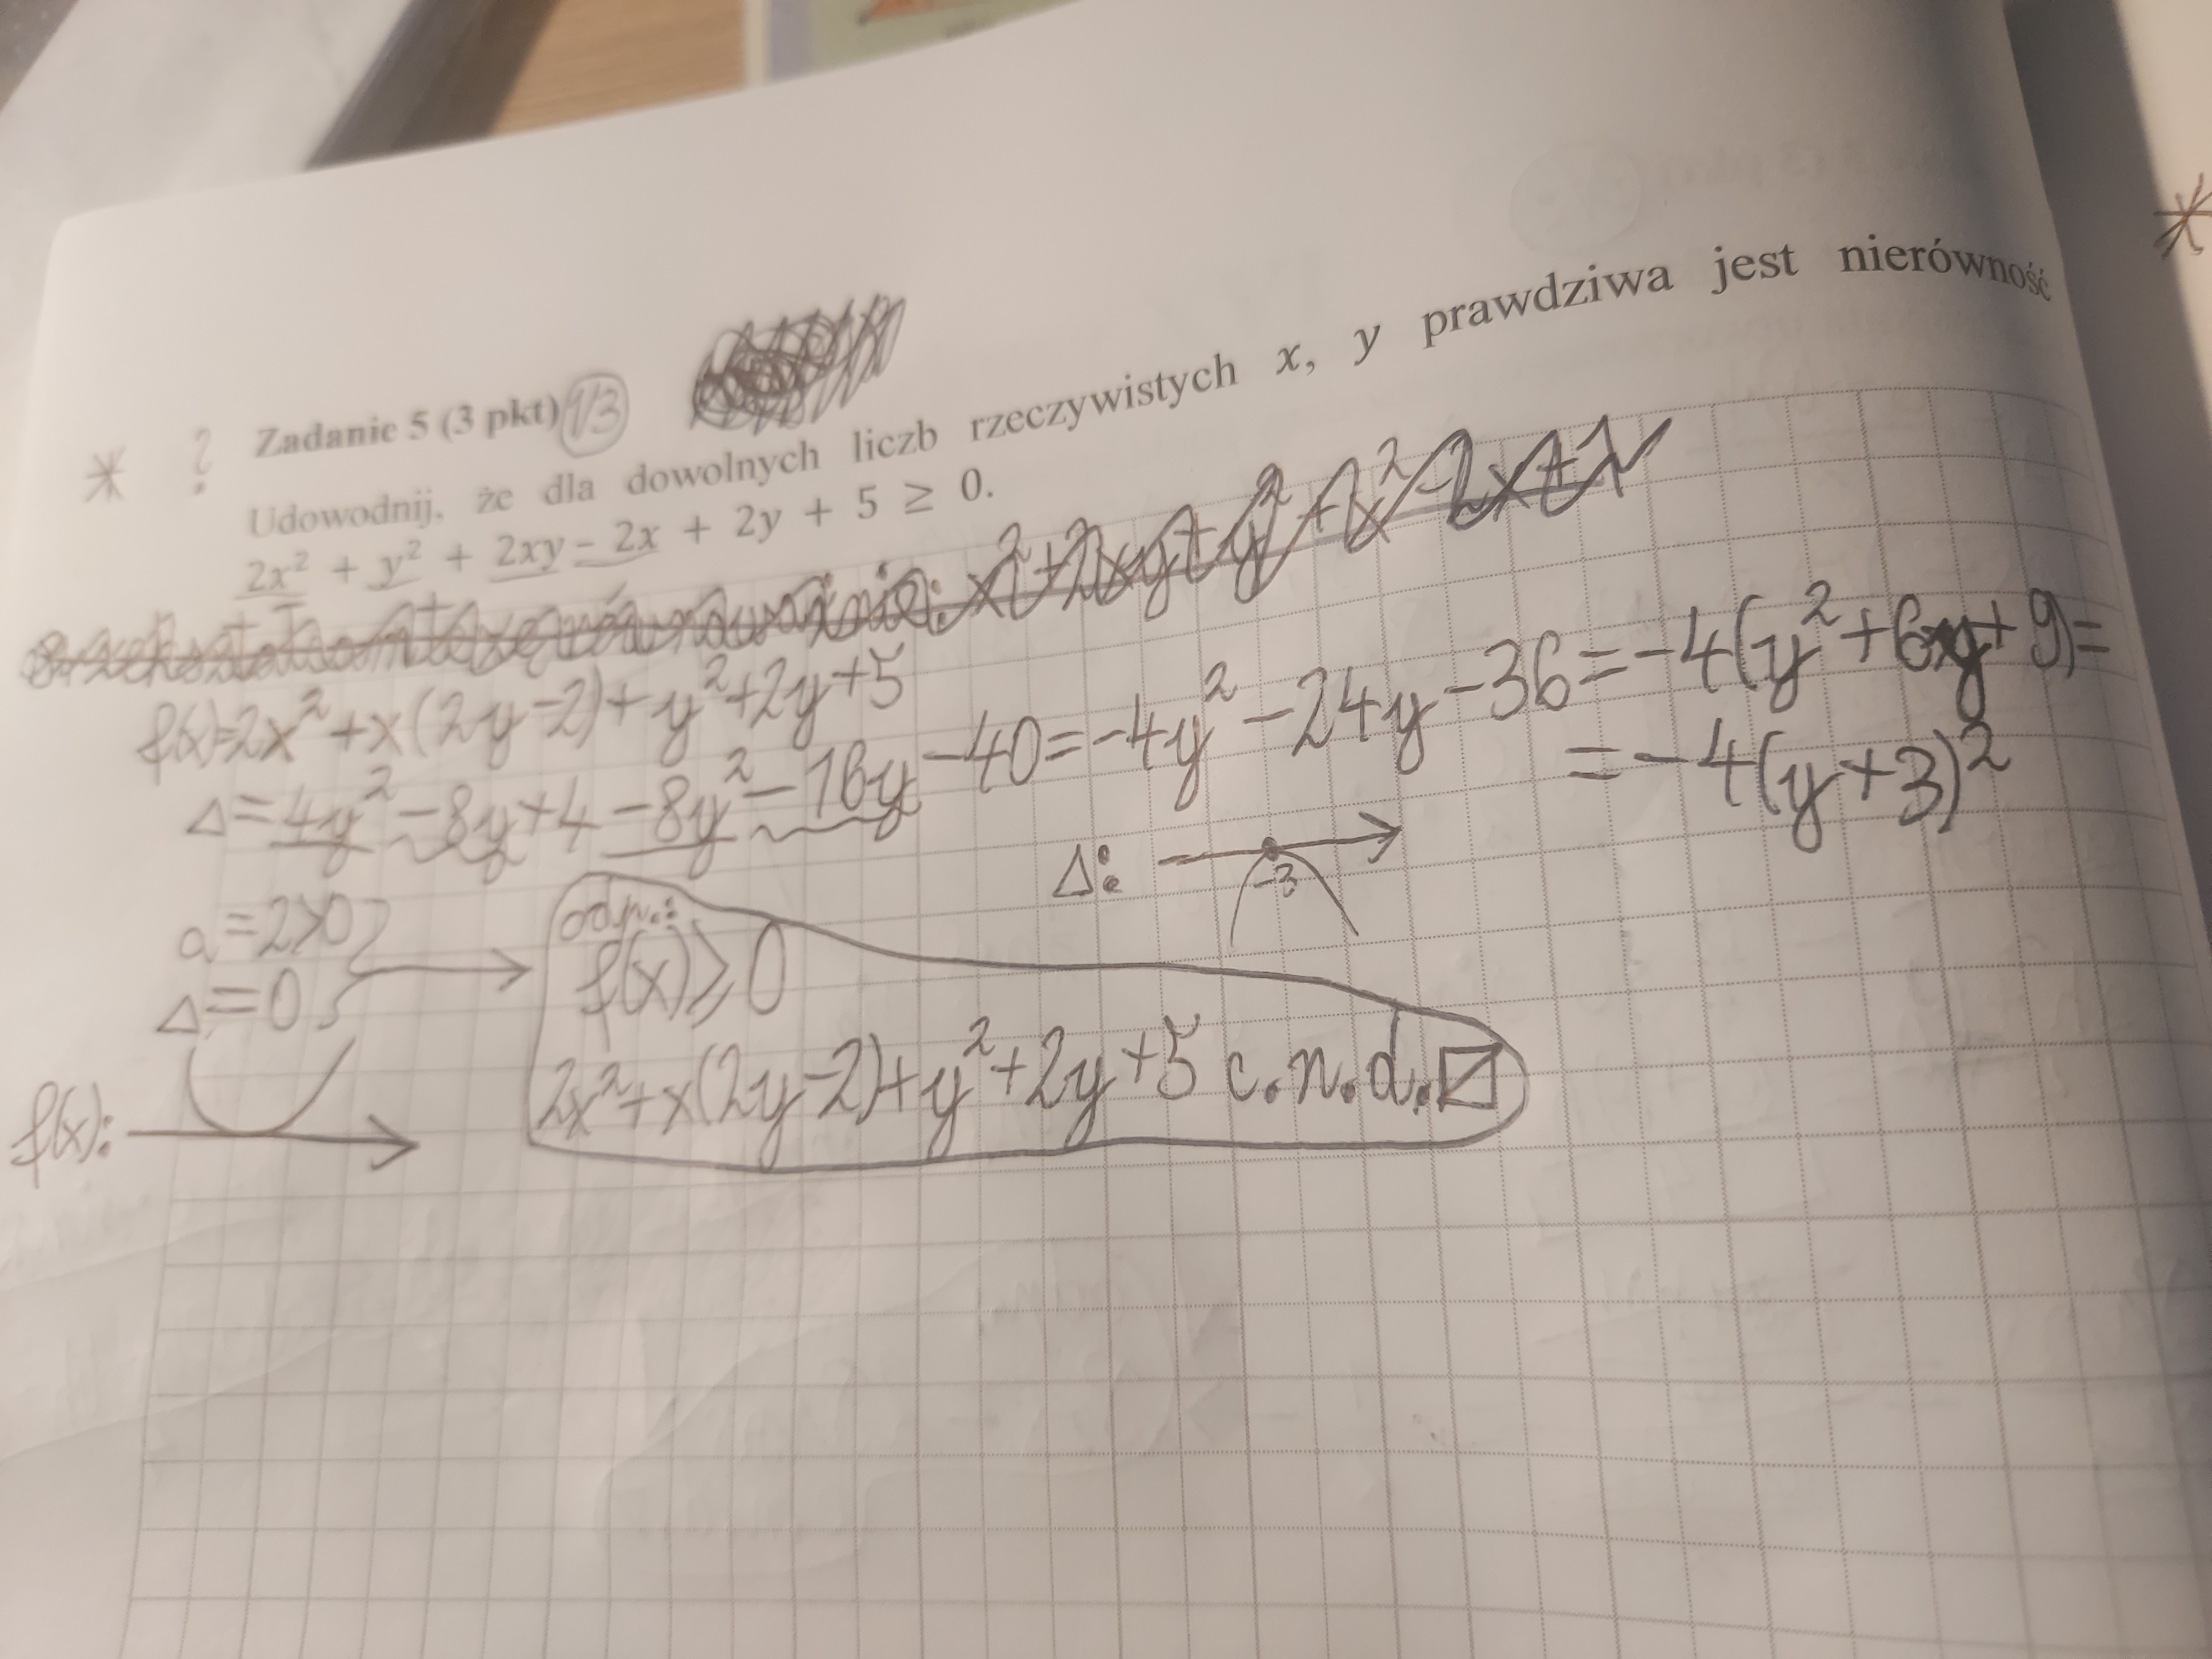 * ? Zadanie 5 (3 pkt) 1/3
Udowodnij, że dla dowolnych liczb rzeczywistych x, y prawdziwa jest nierówność
2x² + y² + 2xy - 2x + 2y + 5 ≥ 0.
x²+2xy+y²+x²-2x+1
f(x)=2x²+x(2y-2)+y²+2y+5
Δ=4y²-8y+4-8y²-16y-40=-4y²-24y-36=-4(y²+6y+9)=
=-4(y+3)²
Δ: -3
a=2>0
Δ=0
odp.:
f(x)≥0
2x²+x(2y-2)+y²+2y+5 c.n.d.
f(x):
*